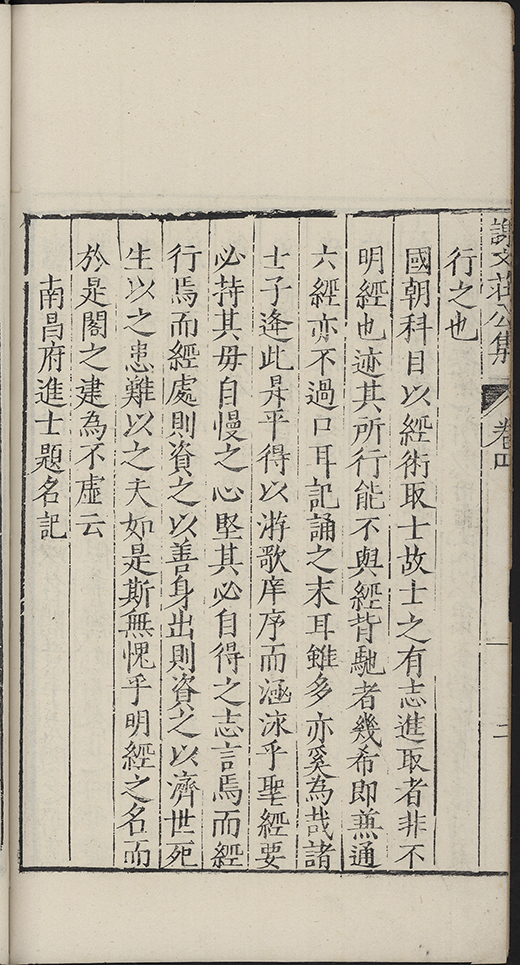 謝文莊公集
卷四
二
行之也
國朝科目以經術取士故士之有志進取者非不
明經也迹其所行能不與經背馳者幾希即兼通
六經亦不過口耳記誦之末耳雖多亦奚為哉諸
士子逢此昇平得以游歌庠序而涵泳乎聖經要
必持其毋自慢之心堅其必自得之志言焉而經
行焉而經處則資之以善身出則資之以濟世死
生以之患難以之夫如是斯無愧乎明經之名而
於是閣之建為不虛云
南昌府進士題名記